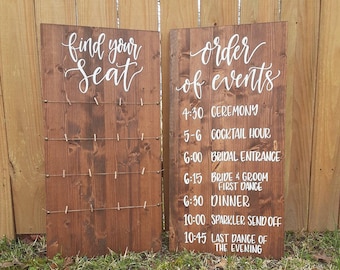 find your
seat
order
of events
4:30 CEREMONY
5-6 COCKTAIL HOUR
6:00 BRIDAL ENTRANCE
6:15 BRIDE & GROOM
FIRST DANCE
6:30 DINNER
10:00 SPARKLER SEND OFF
10:45 LAST DANCE OF
THE EVENING